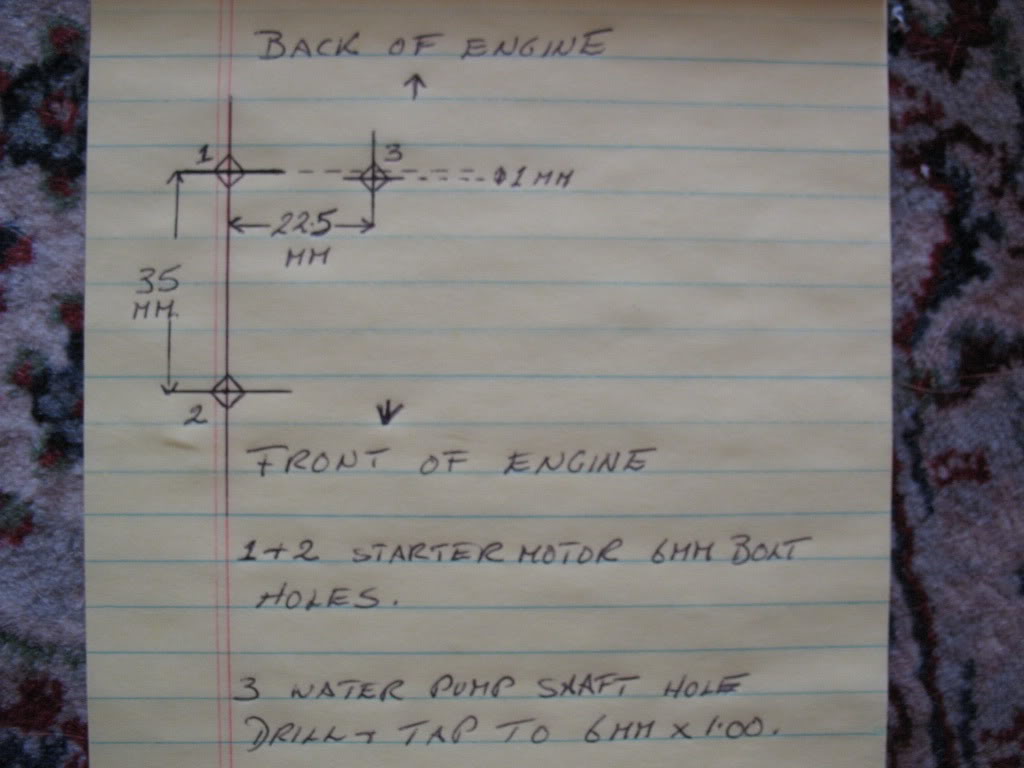 BACK OF ENGINE
1 3
1 MM
22.5
MM
35
MM
2
FRONT OF ENGINE
1+2 STARTER MOTOR 6MM BOLT
HOLES.
3 WATER PUMP SHAFT HOLE
DRILL + TAP TO 6MM X 1.00.